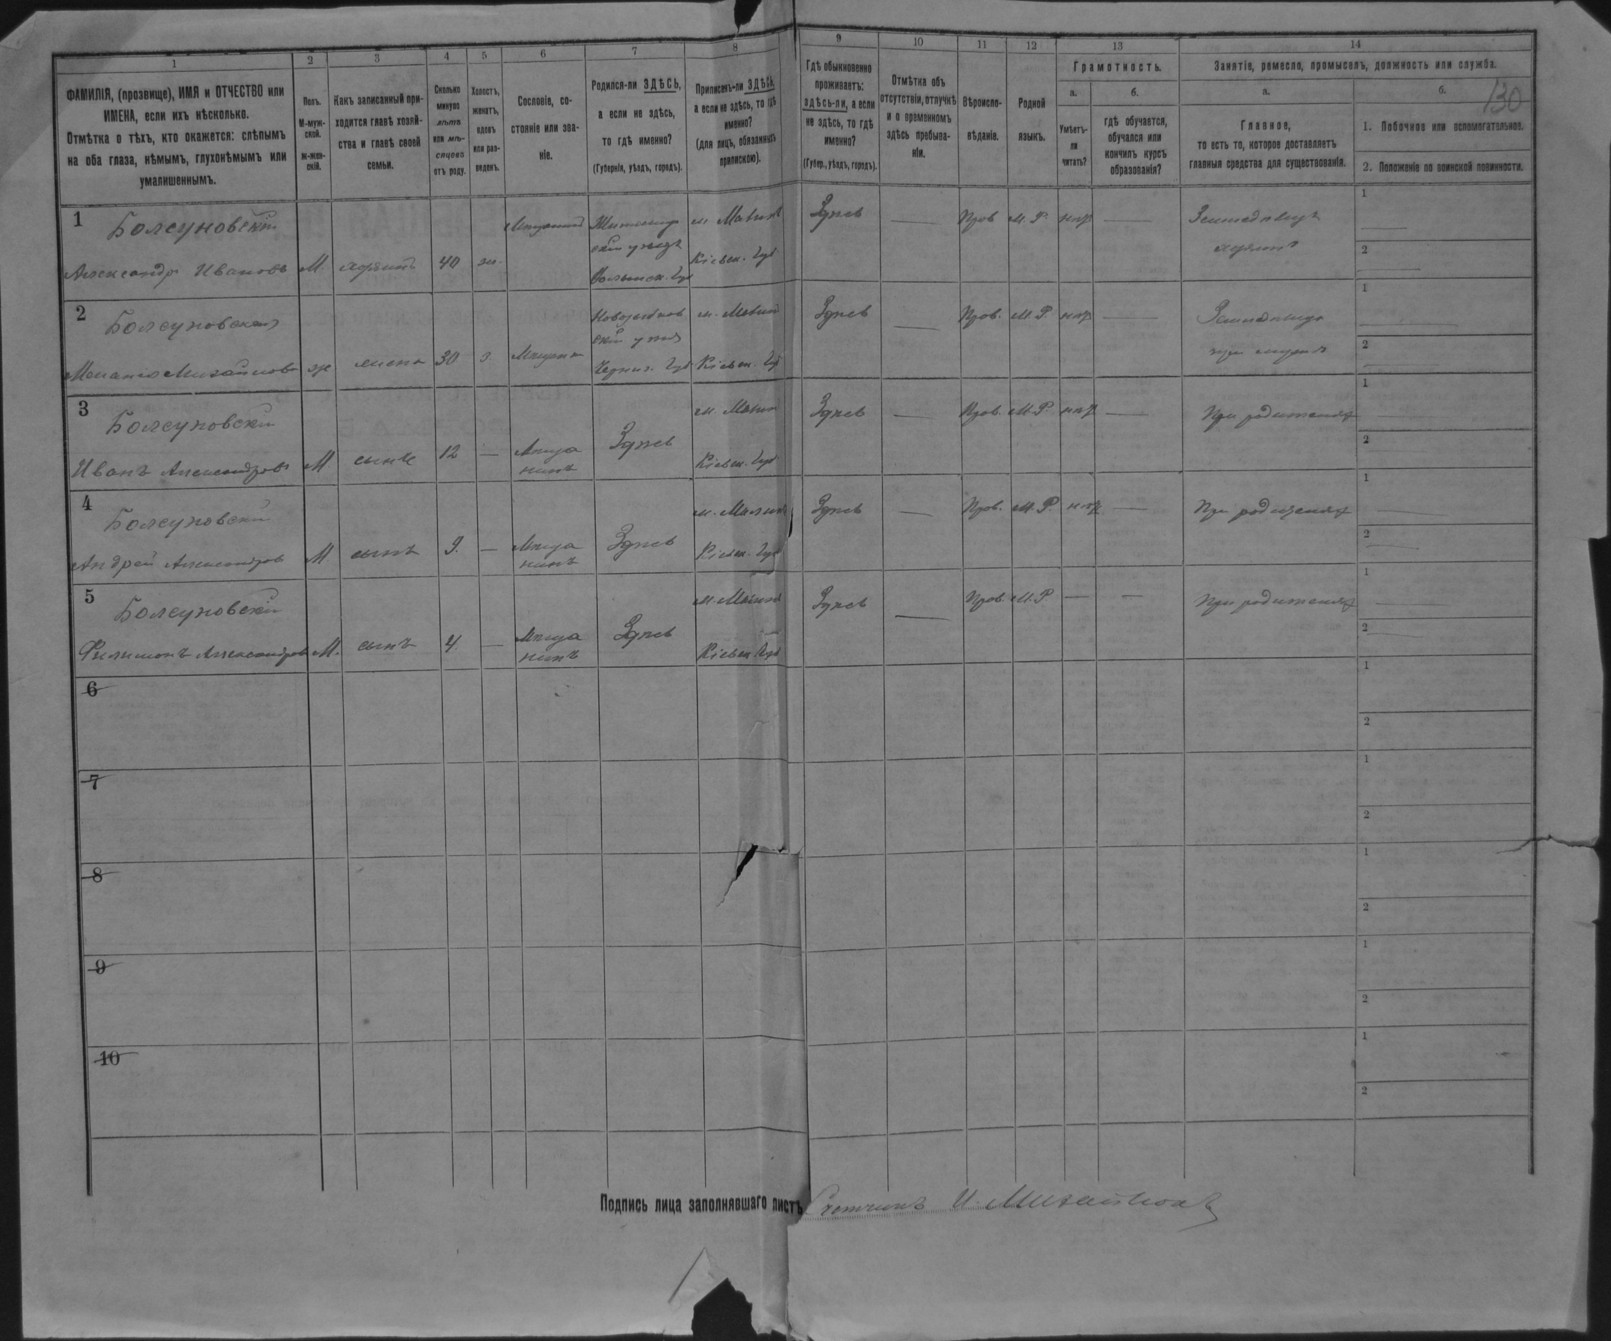 1 2 3 4 5 6 7 8 9 10 11 12 13 14
ФАМИЛІЯ, (прозвище), ИМЯ и ОТЧЕСТВО или
ИМЕНА, если ихъ нѣсколько.
Отмѣтка о тѣхъ, кто окажется: слѣпымъ
на оба глаза, нѣмымъ, глухонѣмымъ или
умалишеннымъ.
Полъ.
М-муж-
ской.
ж-жен-
скій.
Какъ записанный при-
ходится главѣ хозяй-
ства и главѣ своей
семьи.
Сколько
минуло
лѣтъ
или мѣ-
сяцевъ
отъ роду.
Холостъ,
женатъ,
вдовъ
или раз-
веденъ.
Сословіе, со-
стояніе или зва-
ніе.
Родился-ли ЗДѢСЬ,
а если не здѣсь,
то гдѣ именно?
(Губернія, уѣздъ, городъ).
Приписанъ-ли ЗДѢСЬ,
а если не здѣсь, то гдѣ
именно?
(для лицъ, обязанныхъ
припискою).
Гдѣ обыкновенно
проживаетъ:
здѣсь-ли, а если
не здѣсь, то гдѣ
именно?
(Губер., уѣздъ, городъ).
Отмѣтка объ
отсутствіи, отлучкѣ
и о временномъ
здѣсь пребыва-
ніи.
Вѣроиспо-
вѣданіе.
Родной
языкъ.
Грамотность.
а.
Умѣетъ-
ли
читать?
б.
гдѣ обучается,
обучался или
кончилъ курсъ
образованія?
Занятіе, ремесло, промыселъ, должность или служба.
а.
Главное,
то есть то, которое доставляетъ
главныя средства для существованія.
б.
130
1. Побочное или вспомогательное.
2. Положеніе по воинской повинности.
1 Болсуновскій
Александр Ивановъ М. хозяинъ 40 ж.
Житомир
скій уѣздъ
Волынск. Губ
м. Малинъ
Кіевск. Губ
Здѣсь — Прав М.Р. нѣтъ —
1
2
2 Болсуновская
Меланія Михайлова ж жена 30 з. Мѣщанка
уѣзд
Черниг. Губ
м. Малинъ
Кіевск. Губ
Здѣсь — Прав. М.Р. нѣтъ —
1
2
3 Болсуновскій
Иванъ Александровъ М сынъ 12 — Мѣща
нинъ
Здѣсь
м. Малинъ
Кіевск. Губ
Здѣсь — Прав. М.Р. нѣтъ — При родителяхъ
1
2
4 Болсуновскій
Андрей Александровъ М сынъ 9. — Мѣща
нинъ
Здѣсь
м. Малинъ
Кіевск. Губ
Здѣсь — Прав. М.Р нѣтъ — При родителяхъ
1
2
5 Болсуновскій
Филимонъ Александровъ М. сынъ 4 — Мѣща
нинъ
Здѣсь
м. Малинъ
Кіевск. Губ
Здѣсь — Прав. М.Р — — При родителяхъ
1
2
6
1
2
7
1
2
8
1
2
9
1
2
10
1
2
Подпись лица заполнявшаго листъ Счетчикъ И. Михайловъ